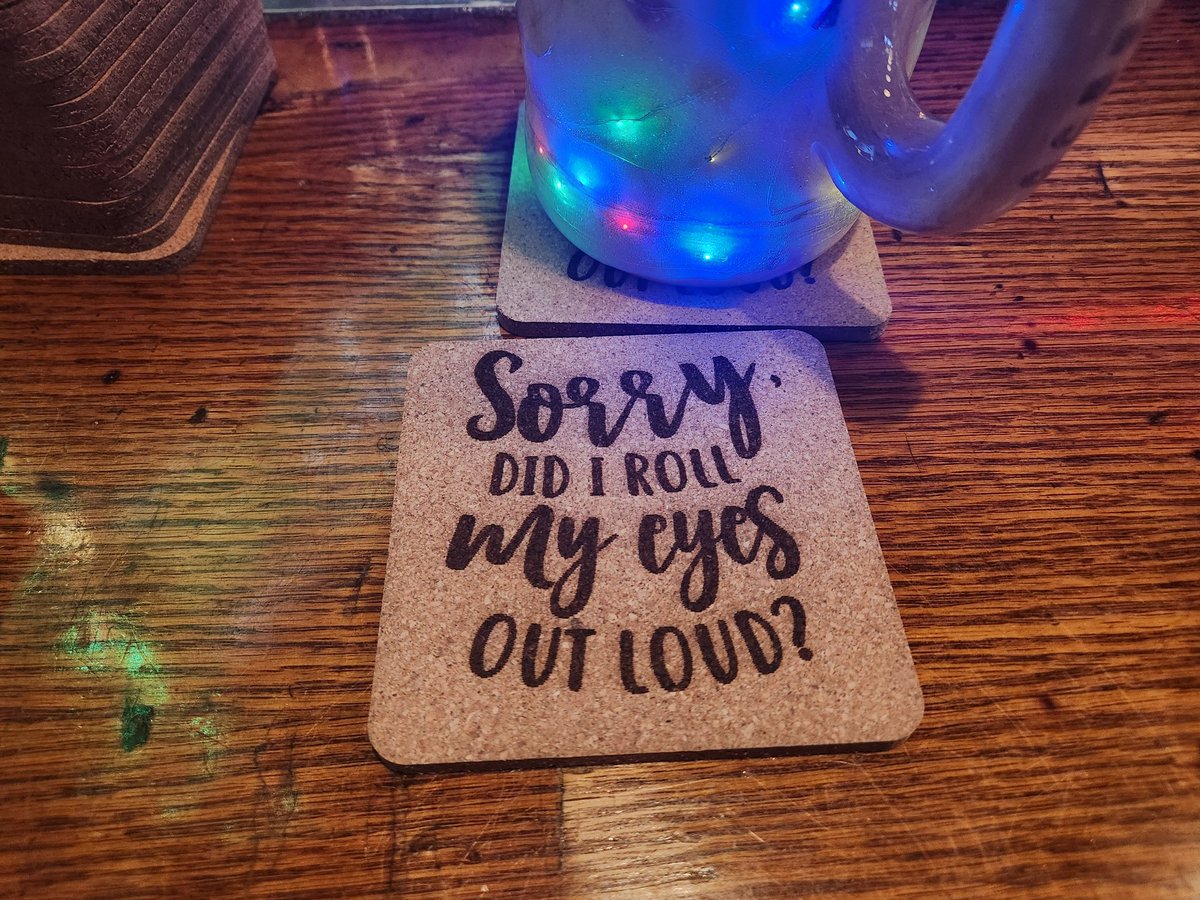 OUT LOUD?
Sorry,
DID I ROLL
my eyes
OUT LOUD?